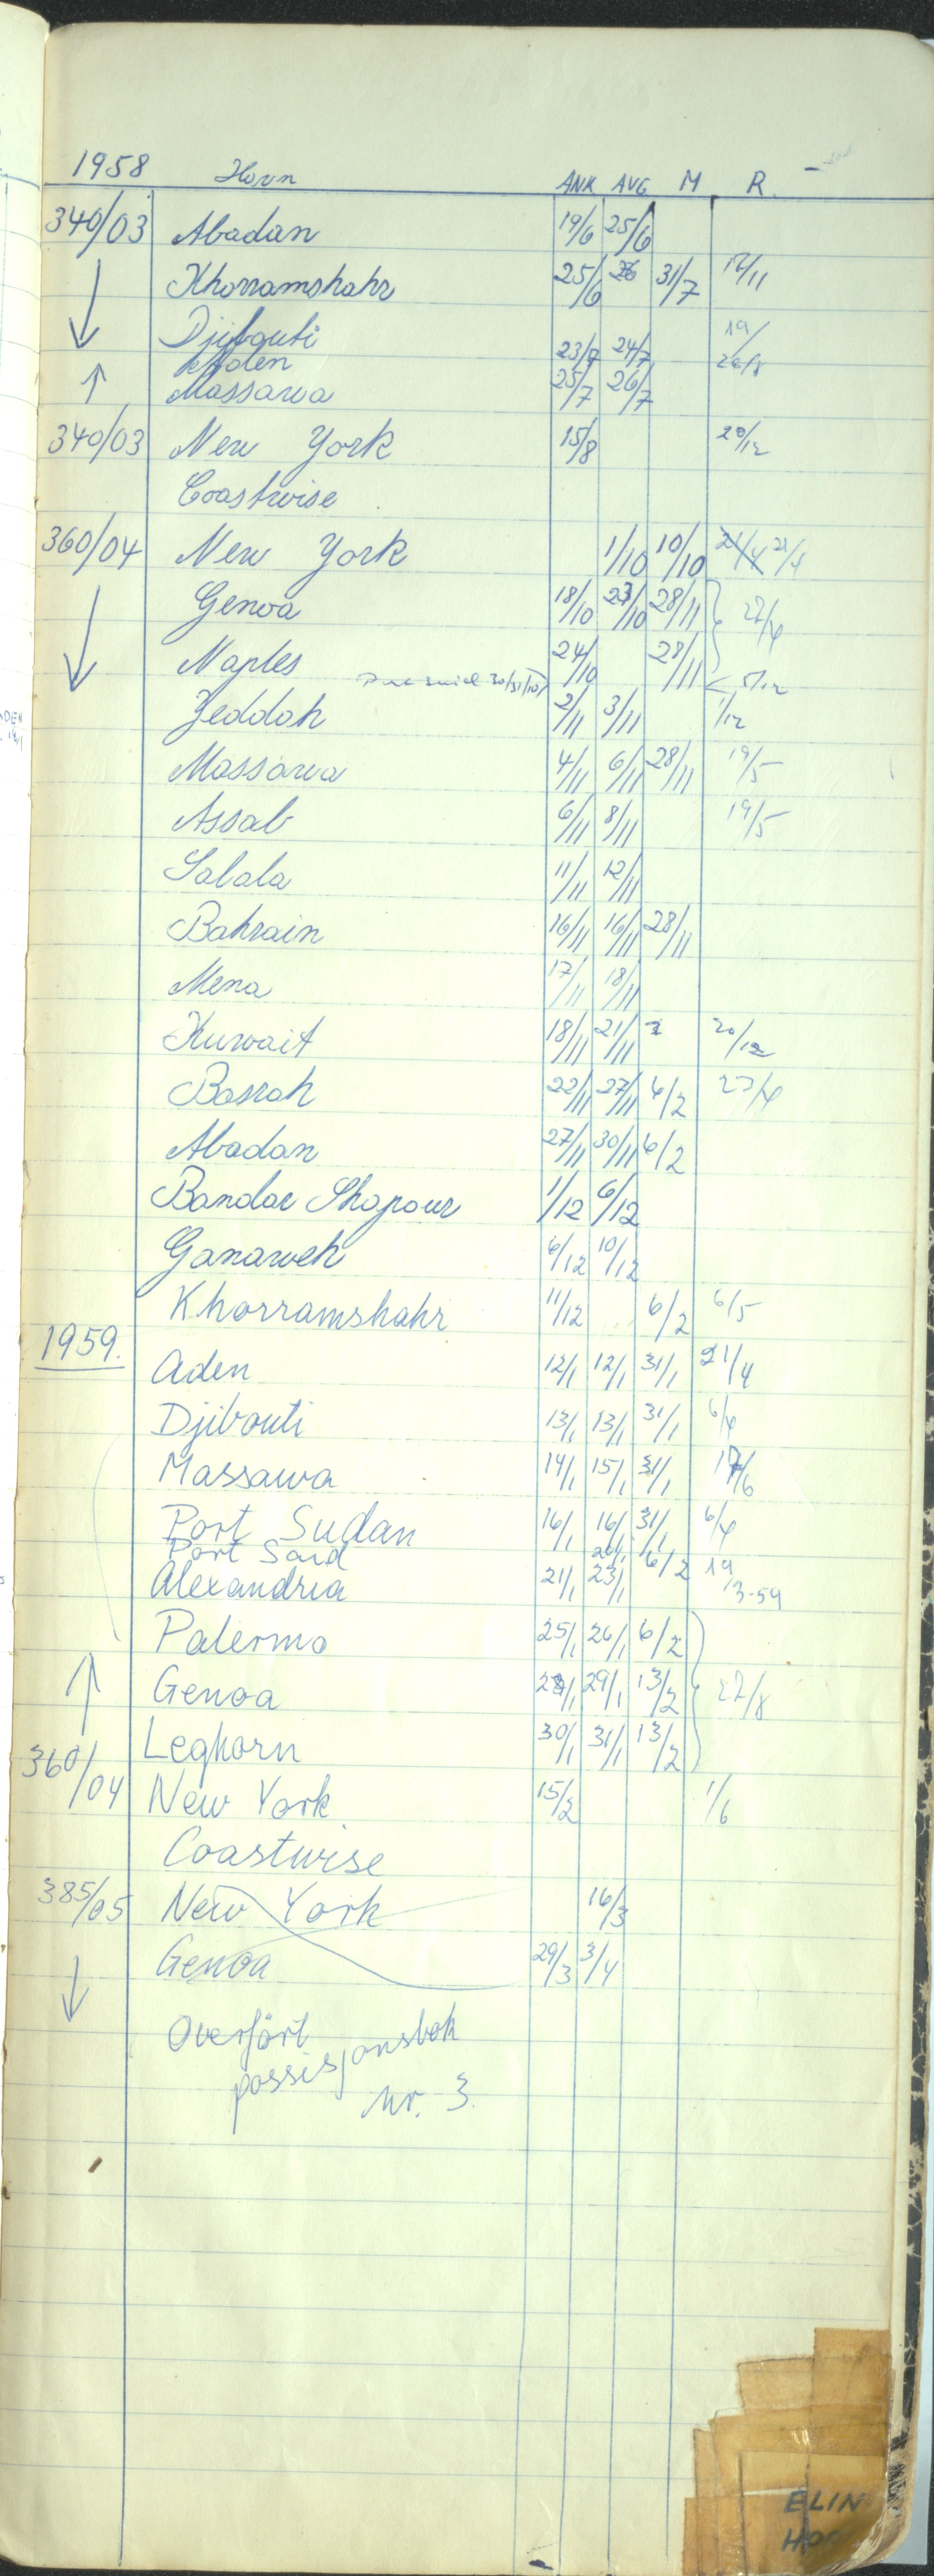 1958 Havn ANK AVG M R.
340/03 Abadan 19/6 25/6
Khorramshahr 25/6 26 31/7 12/11
Djibouti 19/
Aden 23/7 24/7 26/8
Massawa 25/7 26/7
340/03 New York 15/8 20/12
Coastwise
360/04 New York 1/10 10/10 21/4 21/4
Genoa 18/10 23/10 28/11 27/4
Naples 24/10 28/11
30/31/10 5/12
Jeddah 2/11 3/11 1/12
Massawa 4/11 6/11 28/11 19/5
Assab 6/11 8/11 19/5
Salala 11/11 12/11
Bahrain 16/11 16/11 28/11
Mena 17/11 18/11
Kuwait 18/11 21/11 20/12
Basrah 22/11 27/11 6/2 27/4
Abadan 27/11 30/11 6/2
Bandar Shapour 1/12 6/12
Ganaweh 6/12 10/12
Khorramshahr 11/12 6/2 6/5
1959.
Aden 12/1 12/1 31/1 21/4
Djibouti 13/1 13/1 31/1 6/4
Massawa 14/1 15/1 31/1 17/6
Port Sudan 16/1 16/1 31/1 6/4
Port Said 20/1
Alexandria 21/1 23/1 6/2 19/3-59
Palermo 25/1 26/1 6/2
Genoa 27/1 29/1 13/2 27/8
Leghorn 30/1 31/1 13/2
360/04 New York 15/2 1/6
Coastwise
385/05 New York 16/3
Genoa 29/3 3/4
Overført
possisjonsbok
nr. 3.
ELIN
HO